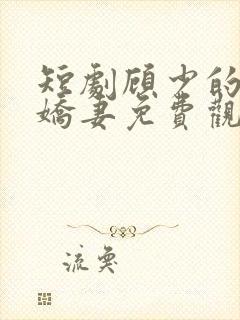 短劇顾少的
嬌妻免費觀
流奭